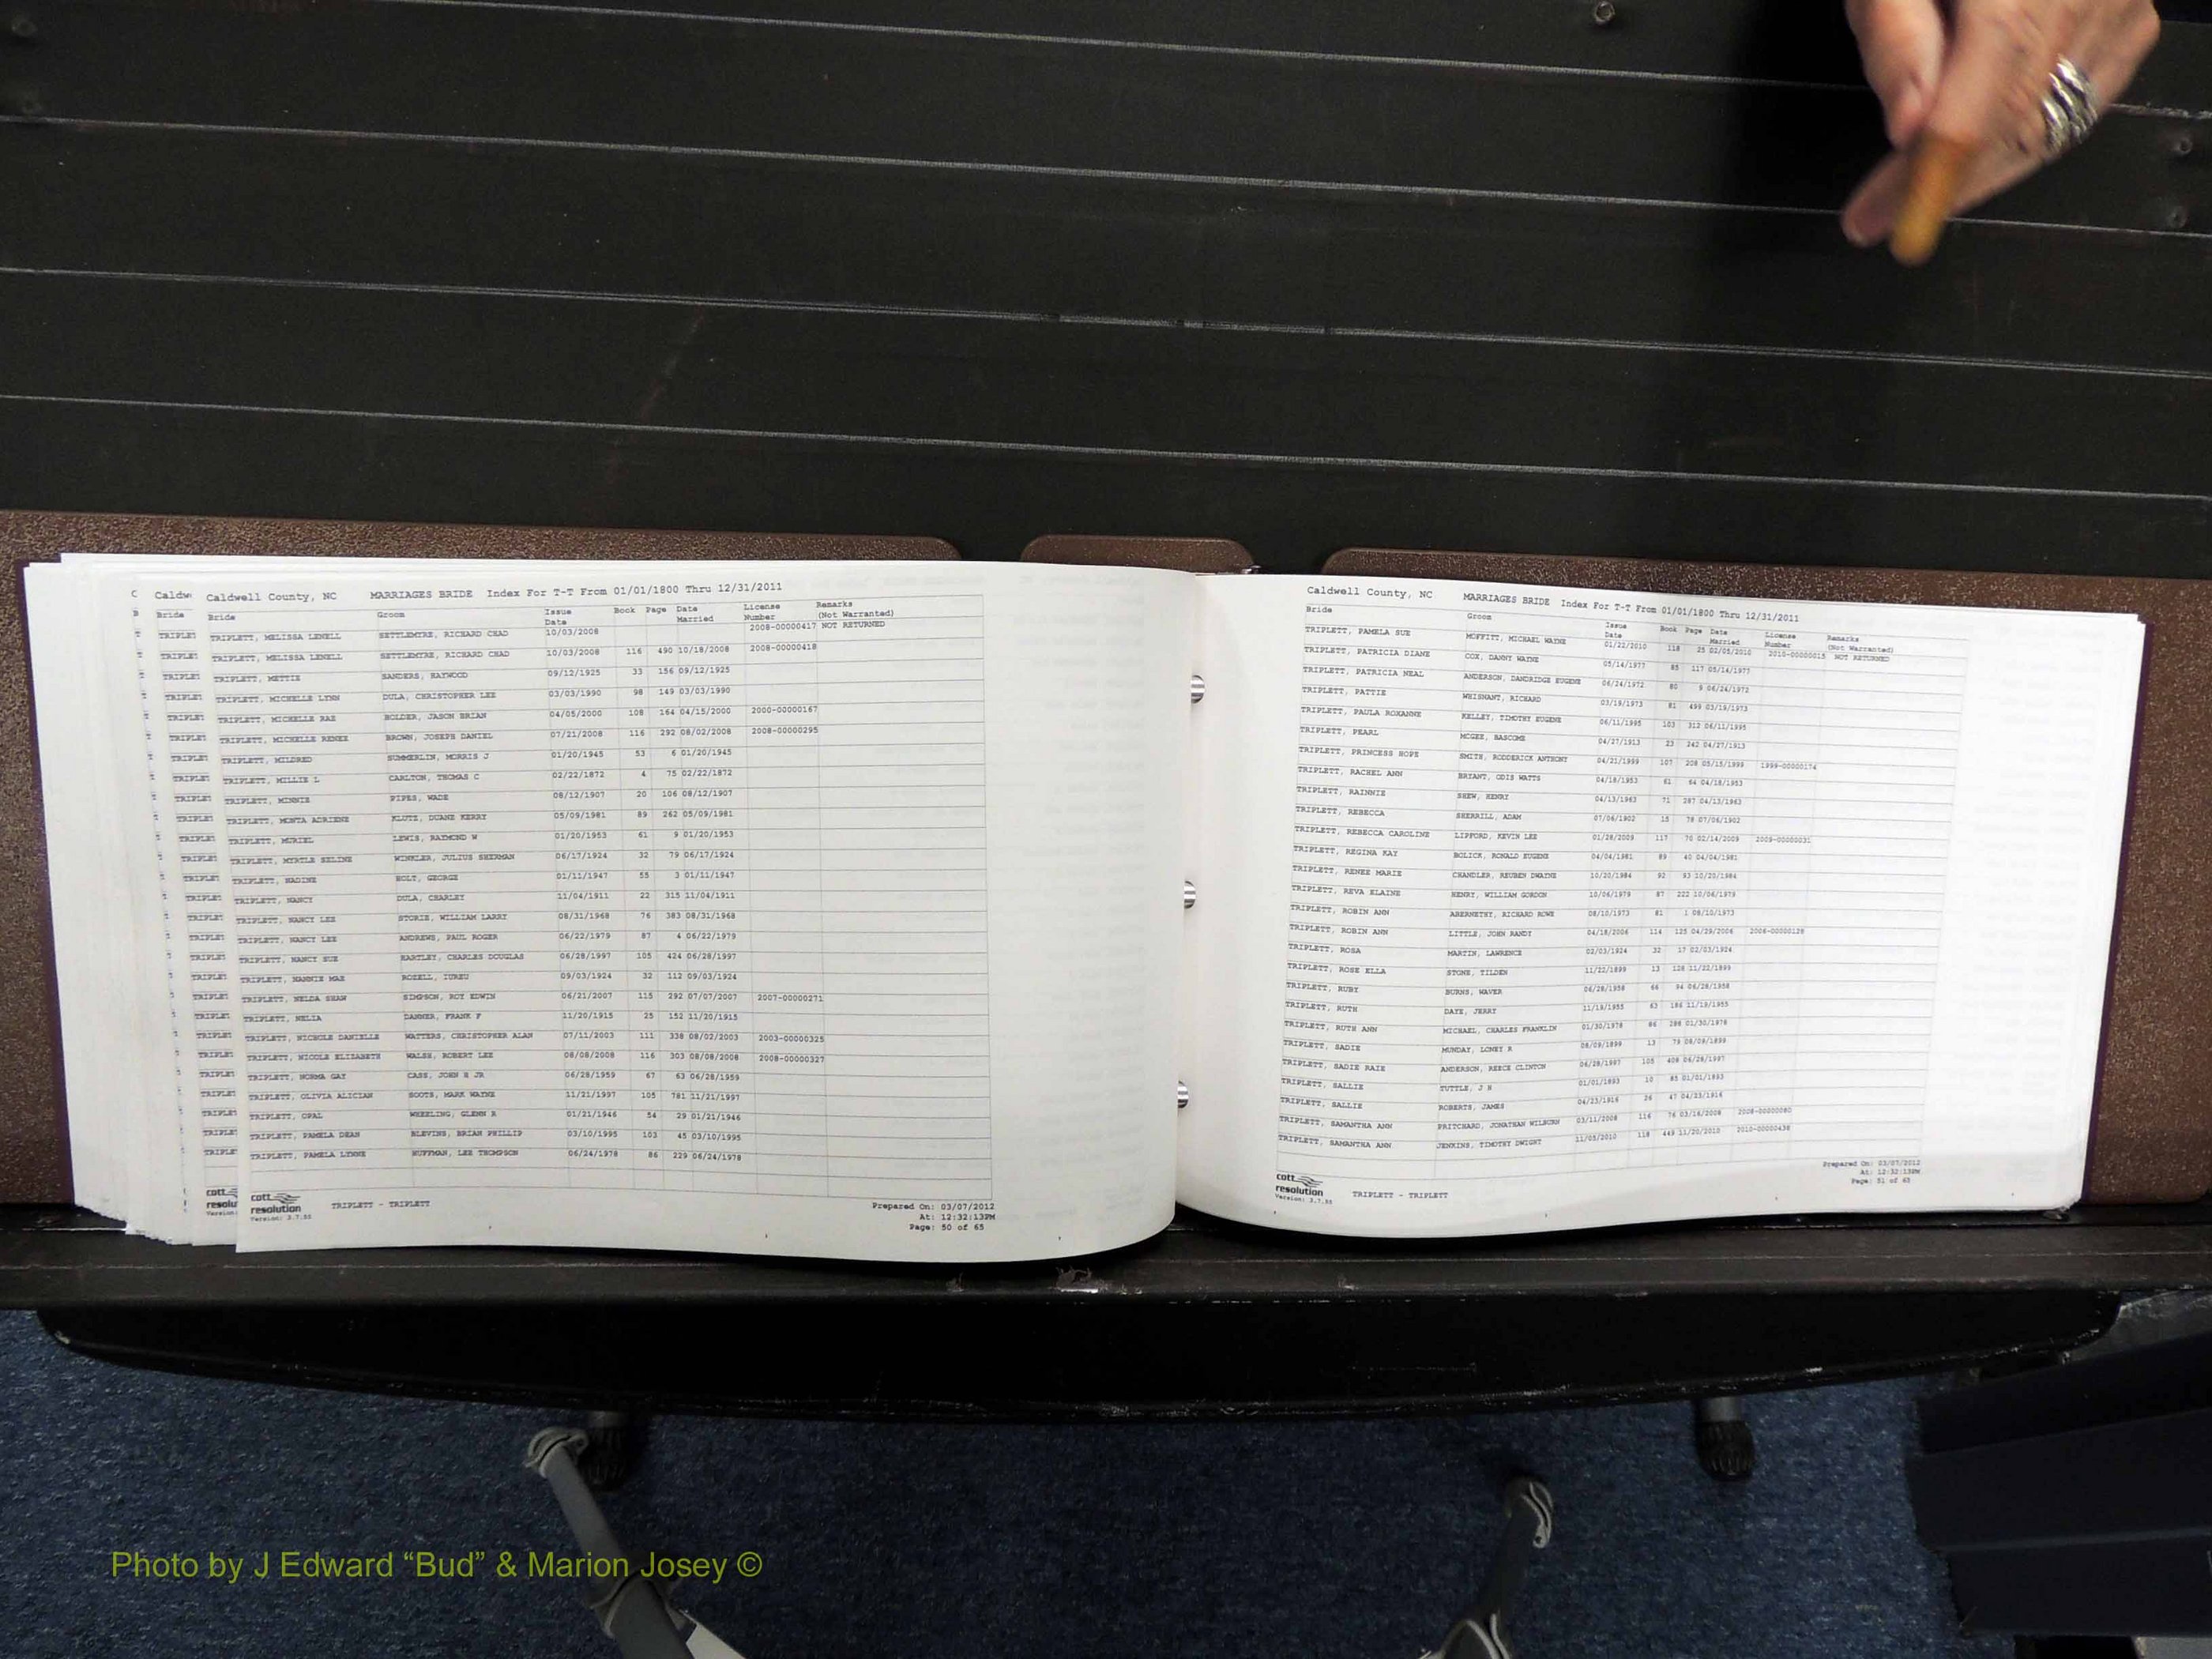 Caldwell County, NC MARRIAGES BRIDE Index For T-T From 01/01/1800 Thru 12/31/2011
Bride Groom Issue Date Book Page Date Married License Number Remarks (Not Warranted)
TRIPLETT, MELISSA LENELL SETTLEMYRE, RICHARD CHAD 10/03/2008 2008-00000417 NOT RETURNED
TRIPLETT, MELISSA LENELL SETTLEMYRE, RICHARD CHAD 10/03/2008 116 490 10/18/2008 2008-00000418
TRIPLETT, METTIE SANDERS, HAYWOOD 09/12/1925 33 156 09/12/1925
TRIPLETT, MICHELLE LYNN DULA, CHRISTOPHER LEE 03/03/1990 98 149 03/03/1990
TRIPLETT, MICHELLE RAE HOLDER, JASON BRIAN 04/05/2000 108 164 04/15/2000 2000-00000167
TRIPLETT, MICHELLE RENEE BROWN, JOSEPH DANIEL 07/21/2008 116 292 08/02/2008 2008-00000295
TRIPLETT, MILDRED SUMMERLIN, MORRIS J 01/20/1945 53 6 01/20/1945
TRIPLETT, MILLIE L CARLTON, THOMAS C 02/22/1872 4 75 02/22/1872
TRIPLETT, MINNIE PIPES, WADE 08/12/1907 20 106 08/12/1907
TRIPLETT, MONTA ADRIENE KLUTZ, DUANE KERRY 05/09/1981 89 262 05/09/1981
TRIPLETT, MURIEL LEWIS, RAYMOND W 01/20/1953 61 9 01/20/1953
TRIPLETT, MYRTLE SELINE WINKLER, JULIUS SHERMAN 06/17/1924 32 79 06/17/1924
TRIPLETT, NADINE HOLT, GEORGE 01/11/1947 55 3 01/11/1947
TRIPLETT, NANCY DULA, CHARLEY 11/04/1911 22 315 11/04/1911
TRIPLETT, NANCY LEE STORIE, WILLIAM LARRY 08/31/1968 76 383 08/31/1968
TRIPLETT, NANCY LEE ANDREWS, PAUL ROGER 06/22/1979 87 4 06/22/1979
TRIPLETT, NANCY SUE HARTLEY, CHARLES DOUGLAS 06/28/1997 105 424 06/28/1997
TRIPLETT, NANNIE MAE ROZELL, 09/03/1924 32 112 09/03/1924
TRIPLETT, NELDA SHAW SIMPSON, ROY EDWIN 06/21/2007 115 292 07/07/2007 2007-00000271
TRIPLETT, NELIA DANNER, FRANK F 11/20/1915 25 152 11/20/1915
TRIPLETT, NICHOLE DANIELLE WATTERS, CHRISTOPHER ALAN 07/11/2003 111 338 08/02/2003 2003-00000325
TRIPLETT, NICOLE ELIZABETH WALSH, ROBERT LEE 08/08/2008 116 303 08/08/2008 2008-00000327
TRIPLETT, NORMA GAY CASS, JOHN H JR 06/28/1959 67 63 06/28/1959
TRIPLETT, OLIVIA ALICIAN SOOTS, MARK WAYNE 11/21/1997 105 781 11/21/1997
TRIPLETT, OPAL WHEELING, GLENN R 01/21/1946 54 29 01/21/1946
TRIPLETT, PAMELA DEAN BLEVINS, BRIAN PHILLIP 03/10/1995 103 45 03/10/1995
TRIPLETT, PAMELA LYNNE HUFFMAN, LEE THOMPSON 06/24/1978 86 229 06/24/1978
cott resolution Version: 3.7.55
TRIPLETT - TRIPLETT
Prepared On: 03/07/2012
At: 12:32:13PM
Page: 50 of 65
Caldwell County, NC MARRIAGES BRIDE Index For T-T From 01/01/1800 Thru 12/31/2011
Bride Groom Issue Date Book Page Date Married License Number Remarks (Not Warranted)
TRIPLETT, PAMELA SUE MOFFITT, MICHAEL WAYNE 01/22/2010 118 25 02/05/2010 2010-00000015 NOT RETURNED
TRIPLETT, PATRICIA DIANE COX, DANNY WAYNE 05/14/1977 85 117 05/14/1977
TRIPLETT, PATRICIA NEAL ANDERSON, DANDRIDGE EUGENE 06/24/1972 80 9 06/24/1972
TRIPLETT, PATTIE WHISNANT, RICHARD 03/19/1973 81 499 03/19/1973
TRIPLETT, PAULA ROXANNE KELLEY, TIMOTHY EUGENE 06/11/1995 103 312 06/11/1995
TRIPLETT, PEARL MCGEE, BASCOME 04/27/1913 23 242 04/27/1913
TRIPLETT, PRINCESS HOPE SMITH, RODDERICK ANTHONY 04/21/1999 107 208 05/15/1999 1999-00000174
TRIPLETT, RACHEL ANN BRYANT, ODIS WATTS 04/18/1953 61 64 04/18/1953
TRIPLETT, RAINNIE SHEW, HENRY 04/13/1963 71 287 04/13/1963
TRIPLETT, REBECCA SHERRILL, ADAM 07/06/1902 15 78 07/06/1902
TRIPLETT, REBECCA CAROLINE LIPFORD, KEVIN LEE 01/28/2009 117 70 02/14/2009 2009-00000031
TRIPLETT, REGINA KAY BOLICK, RONALD EUGENE 04/04/1981 89 40 04/04/1981
TRIPLETT, RENEE MARIE CHANDLER, REUBEN DWAYNE 10/20/1984 92 93 10/20/1984
TRIPLETT, REVA ELAINE HENRY, WILLIAM GORDON 10/06/1979 87 222 10/06/1979
TRIPLETT, ROBIN ANN ABERNETHY, RICHARD ROWE 08/10/1973 81 1 08/10/1973
TRIPLETT, ROBIN ANN LITTLE, JOHN RANDY 04/18/2006 114 125 04/29/2006 2006-00000128
TRIPLETT, ROSA MARTIN, LAWRENCE 02/03/1924 32 17 02/03/1924
TRIPLETT, ROSE ELLA STONE, TILDEN 11/22/1899 13 128 11/22/1899
TRIPLETT, RUBY BURNS, WAVER 06/28/1958 66 94 06/28/1958
TRIPLETT, RUTH DAYE, JERRY 11/19/1955 63 186 11/19/1955
TRIPLETT, RUTH ANN MICHAEL, CHARLES FRANKLIN 01/30/1978 86 288 01/30/1978
TRIPLETT, SADIE MUNDAY, LONEY R 08/09/1899 13 79 08/09/1899
TRIPLETT, SADIE RAIE ANDERSON, REECE CLINTON 06/28/1997 105 408 06/28/1997
TRIPLETT, SALLIE TUTTLE, J N 01/01/1893 10 85 01/01/1893
TRIPLETT, SALLIE ROBERTS, JAMES 04/23/1916 26 47 04/23/1916
TRIPLETT, SAMANTHA ANN PRITCHARD, JONATHAN WILBURN 03/11/2008 116 76 03/16/2008 2008-00000080
TRIPLETT, SAMANTHA ANN JENKINS, TIMOTHY DWIGHT 11/05/2010 118 449 11/20/2010 2010-00000438
cott resolution Version: 3.7.55
TRIPLETT - TRIPLETT
Prepared On: 03/07/2012
At: 12:32:13PM
Page: 51 of 65
Photo by J Edward “Bud” & Marion Josey ©